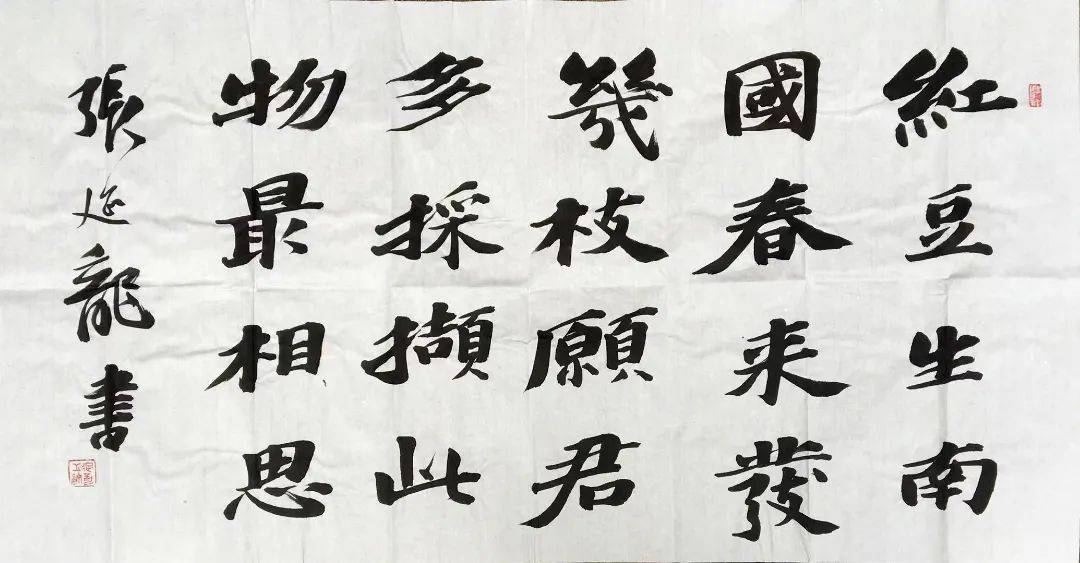 紅豆生南
國春来發
幾枝願君
多採擷此
物最相思
張延龍書